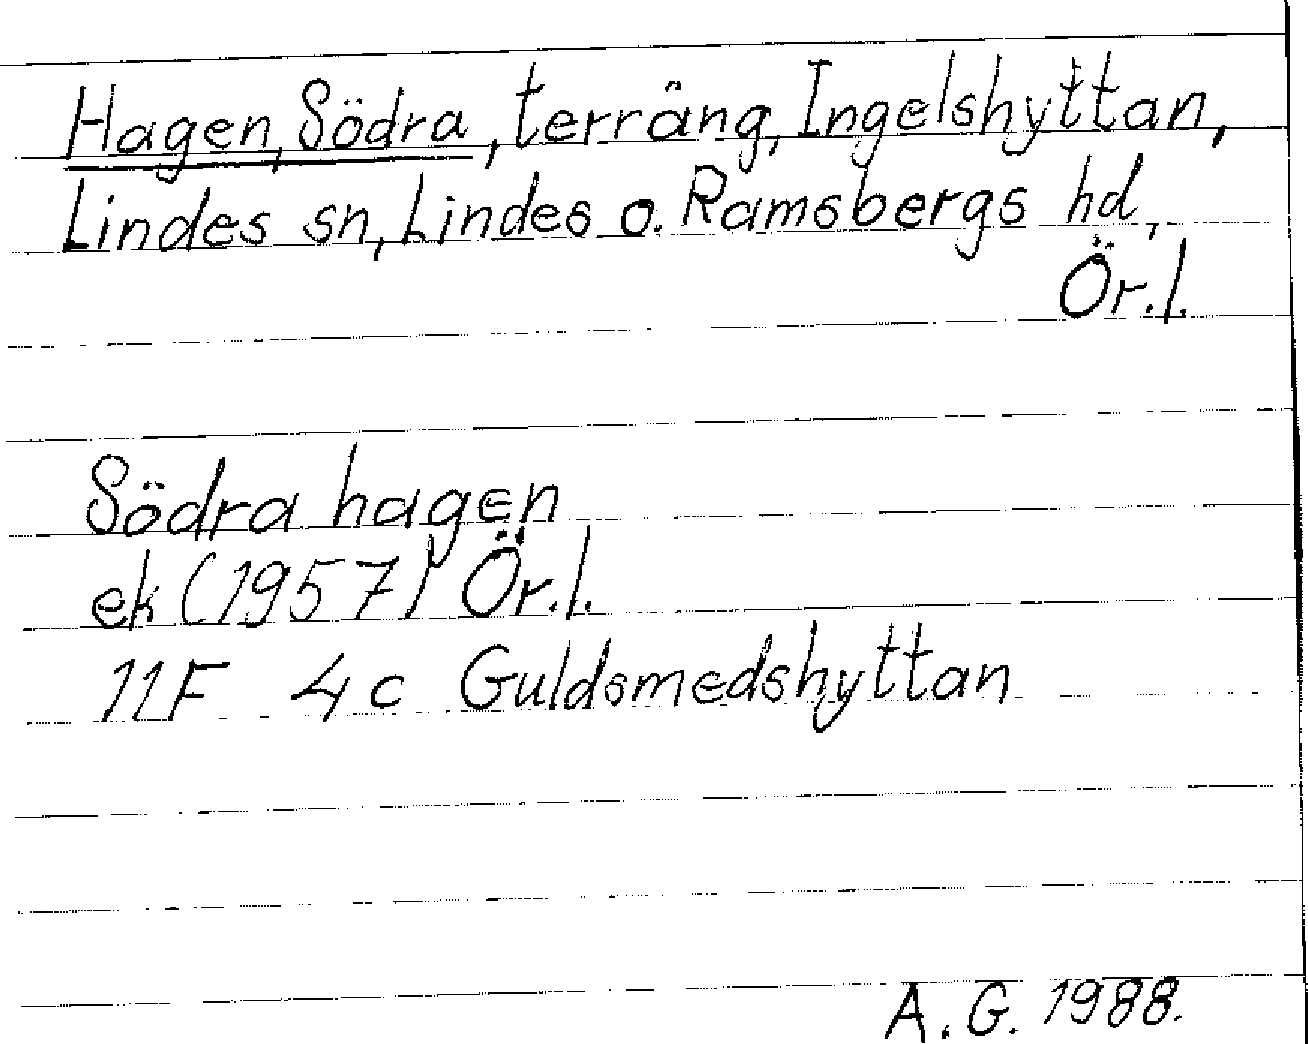 Hagen, Södra, terräng, Ingelshyttan,
Lindes sn, Lindes o. Ramsbergs hd,
Ör.l.
Södra hagen
ek (1957) Ör.l.
11F 4c Guldsmedshyttan
A.G. 1988.